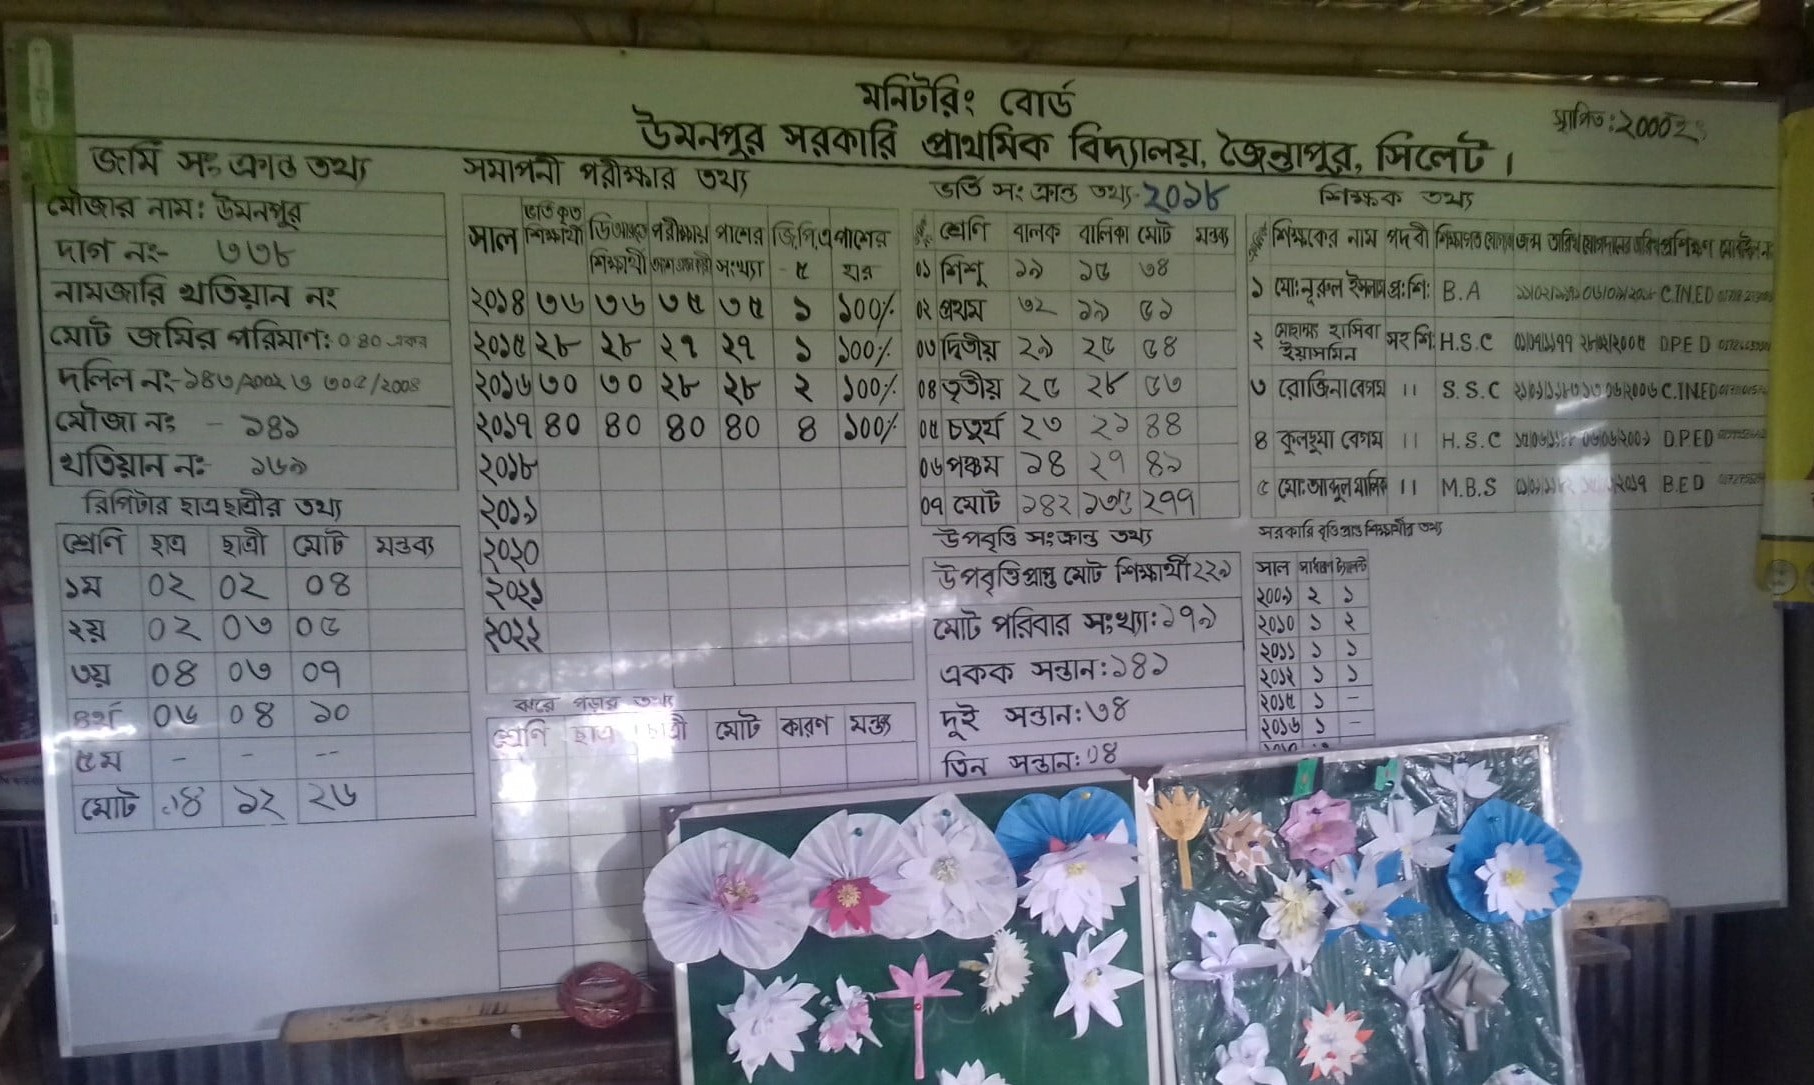 মনিটরিং বোর্ড
উমনপুর সরকারি প্রাথমিক বিদ্যালয়, জৈন্তাপুর, সিলেট।
স্থাপিত: ২000ইং
জমি সংক্রান্ত তথ্য
মৌজার নাম: উমনপুর
দাগ নং- ৩৩৮
নামজারি খতিয়ান নং
মোট জমির পরিমান: 0.৪0 একর
দলিল নং-
মৌজা নং - ১৪১
খতিয়ান নং- ১৬৯
রিপিটার ছাত্রছাত্রীর তথ্য
শ্রেণি ছাত্র ছাত্রী মোট মন্তব্য
১ম 0২ 0২ 0৪
২য় 0২ 0৩ 0৫
৩য় 0৪ 0৩ 0৭
৪র্থ 0৬ 0৪ ১0
৫ম - - --
মোট ১৪ ১২ ২৬
সমাপনী পরীক্ষার তথ্য
সাল ভর্তিকৃত শিক্ষার্থী ডিআরভুক্ত শিক্ষার্থী পরীক্ষায় অংশগ্রহণকারী পাশের সংখ্যা জি.পি.এ - ৫ পাশের হার
২০১৪ ৩৬ ৩৬ ৩৫ ৩৫ ১ ১00%
২০১৫ ২৮ ২৮ ২৭ ২৭ ১ ১00%
২০১৬ ৩0 ৩0 ২৮ ২৮ ২ ১00%
২০১৭ ৪0 ৪0 ৪0 ৪0 ৪ ১00%
২০১৮
২০১৯
২০২০
২০২১
২০২২
ঝরে পড়ার তথ্য
শ্রেণি ছাত্র ছাত্রী মোট কারণ মন্তব্য
ভর্তি সংক্রান্ত তথ্য-২০১৮
শ্রেণি বালক বালিকা মোট মন্তব্য
0১ শিশু ১৯ ১৫ ৩৪
0২ প্রথম ৩২ ১৯ ৫১
0৩ দ্বিতীয় ২৯ ২৫ ৫৪
0৪ তৃতীয় ২৫ ২৮ ৫৩
0৫ চতুর্থ ২৩ ২১ ৪৪
0৬ পঞ্চম ১৪ ২৭ ৪১
0৭ মোট ১৪২ ১৩৫ ২৭৭
উপবৃত্তি সংক্রান্ত তথ্য
উপবৃত্তিপ্রাপ্ত মোট শিক্ষার্থী ২২৯
মোট পরিবার সংখ্যা: ১৭৯
একক সন্তান: ১৪১
দুই সন্তান: ৩৪
তিন সন্তান: 0৪
শিক্ষক তথ্য
শিক্ষকের নাম পদবী শিক্ষাগত যোগ্যতা জন্ম তারিখ যোগদানের তারিখ প্রশিক্ষণ মোবাইল নং
১ মো: নূরুল ইসলাম প্র: শি: B.A C.IN.ED
২ হাসিবা ইয়াসমিন সহ শি: H.S.C D.P.E D
৩ রোজিনা বেগম ।। S.S.C C.IN.ED
৪ কুলছুমা বেগম ।। H.S.C D.P.ED
৫ মো: আব্দুল মালিক ।। M.B.S B.ED
সরকারি বৃত্তিপ্রাপ্ত শিক্ষার্থীর তথ্য
সাল সাধারণ ট্যালেন্ট
২00৯ ২ ১
২০১০ ১ ২
২০১১ ১ ১
২০১২ ১ ১
২০১৫ ১ -
২০১৬ ১ -